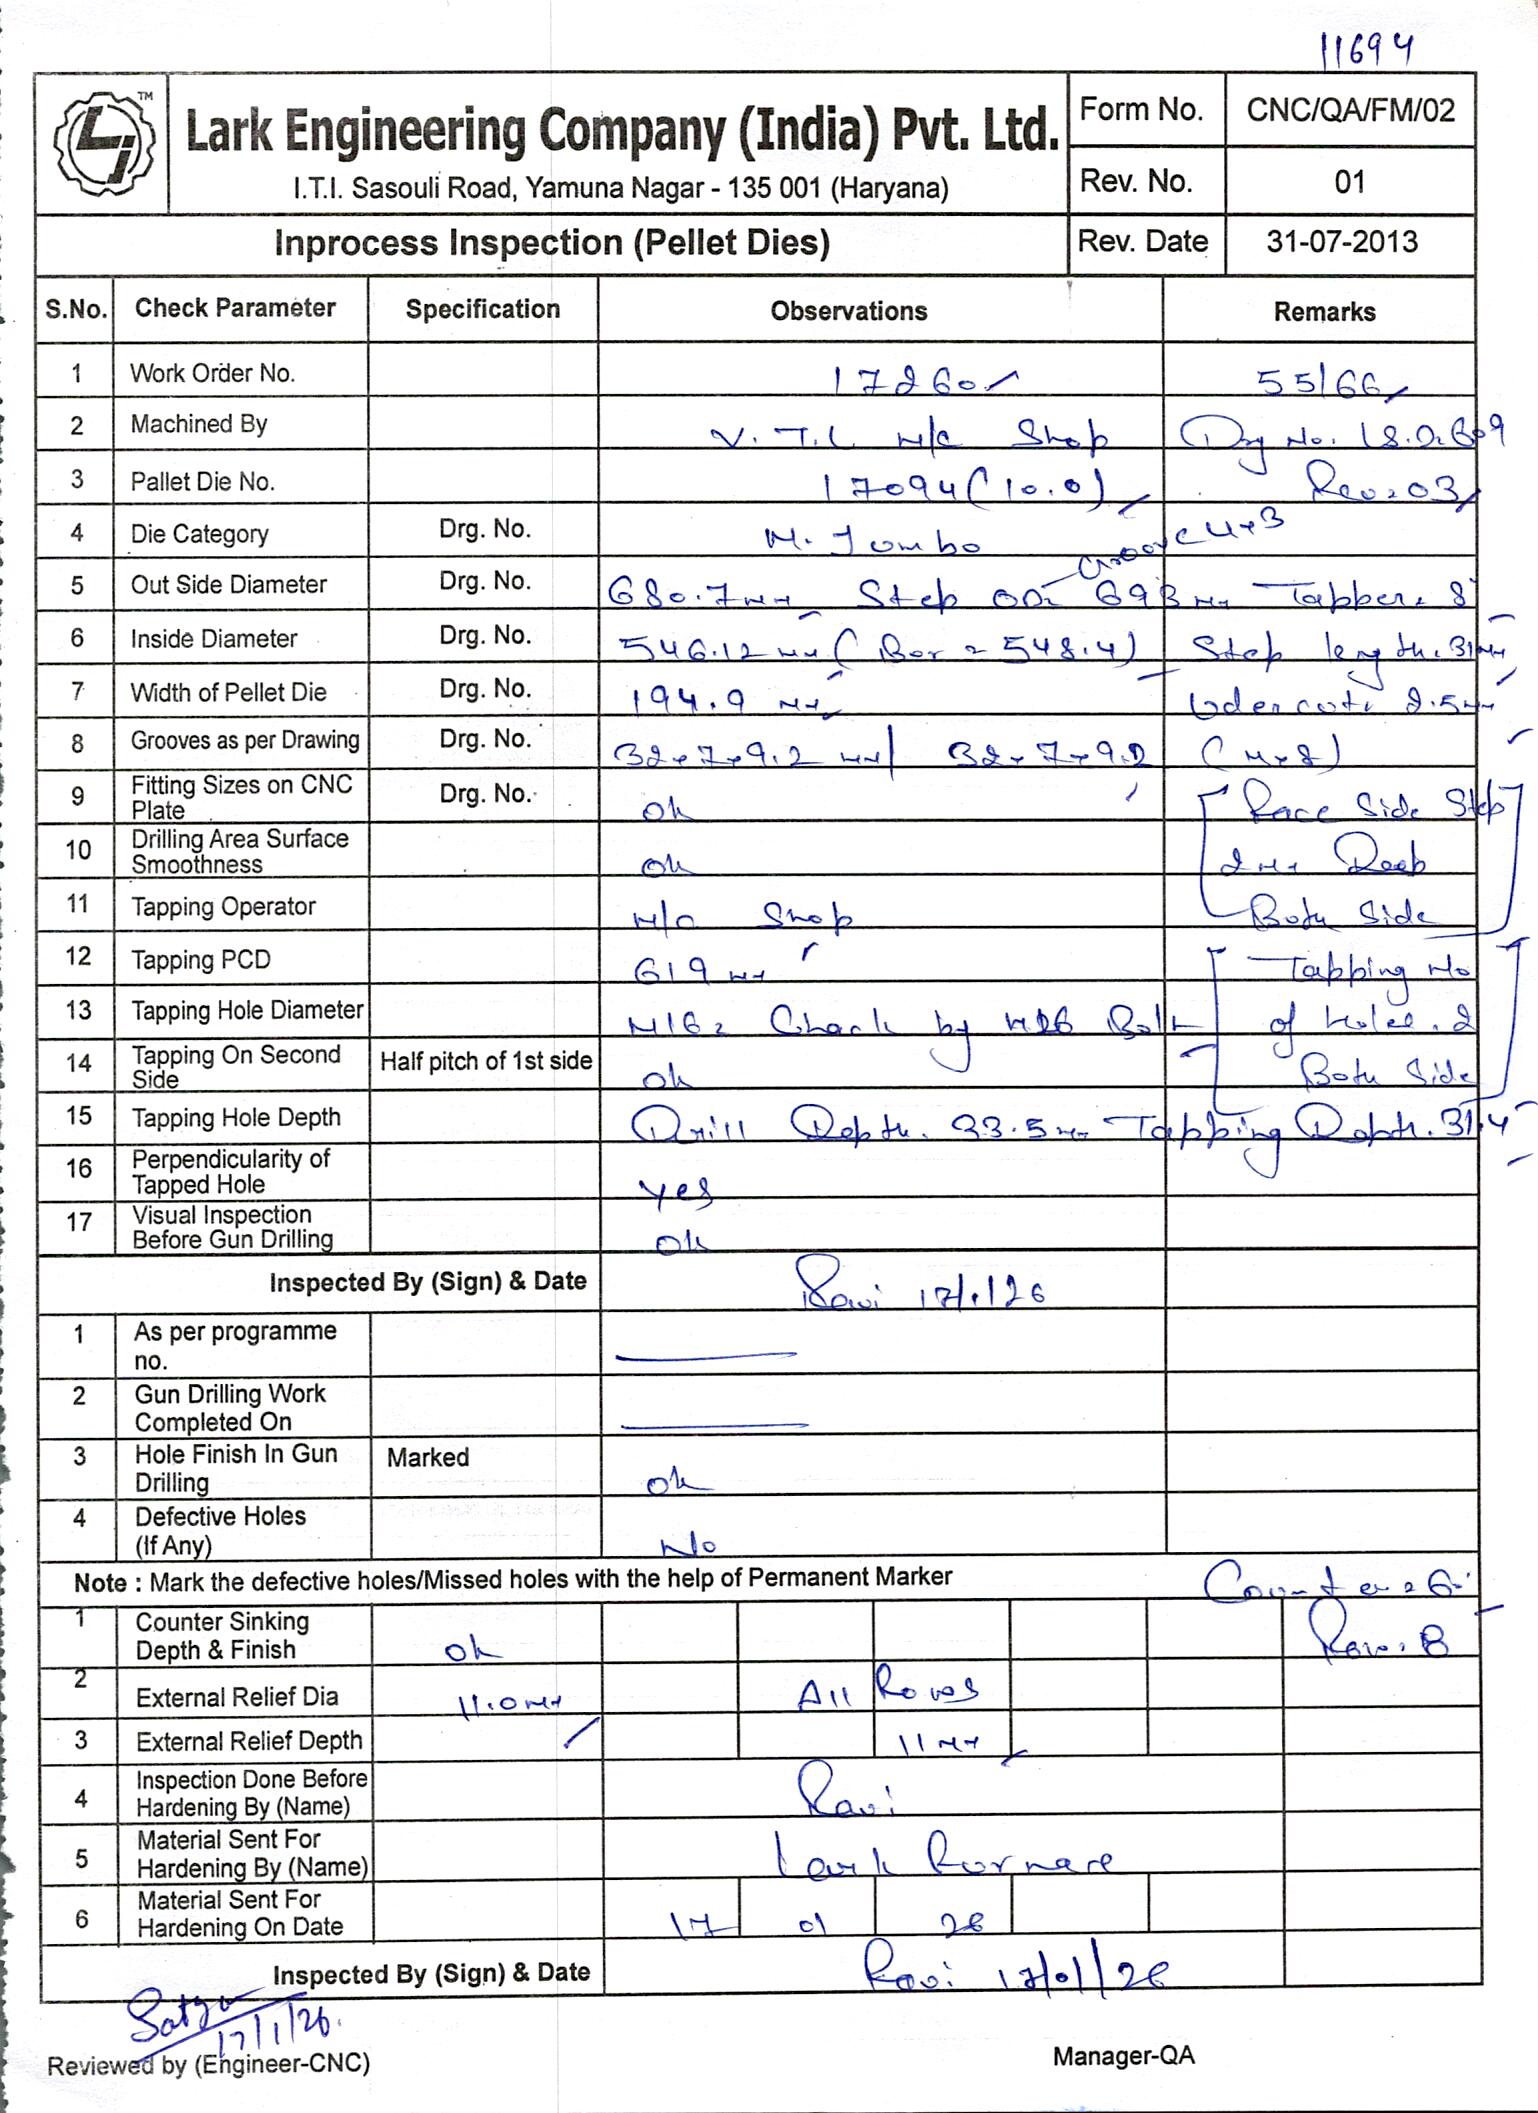 11694
TM
Lark Engineering Company (India) Pvt. Ltd.
I.T.I. Sasouli Road, Yamuna Nagar - 135 001 (Haryana)
Form No. CNC/QA/FM/02
Rev. No. 01
Inprocess Inspection (Pellet Dies) Rev. Date 31-07-2013
S.No. Check Parameter Specification Observations Remarks
1 Work Order No. 17260 55/66
2 Machined By V.T.L M/c Shop Drg No. 18.0.609
3 Pallet Die No. 17094 (10.0) Rev=03
4 Die Category Drg. No. M. Jumbo Groove 4x3
5 Out Side Diameter Drg. No. 680.7mm Step OD= 693mm Tapper= 8
6 Inside Diameter Drg. No. 546.12mm (Bor = 548.4) Step length. 31mm
7 Width of Pellet Die Drg. No. 194.9 mm Udercut= 2.5mm
8 Grooves as per Drawing Drg. No. 32x7x9.2 mm/ 32x7x9.2 (4x8)
9 Fitting Sizes on CNC Plate Drg. No. ok Race Side Step
10 Drilling Area Surface Smoothness ok 2mm Deep
11 Tapping Operator M/c Shop Both Side
12 Tapping PCD 619 mm Tapping No
13 Tapping Hole Diameter M16= Chack by M16 Bolt of holes. 2
14 Tapping On Second Side Half pitch of 1st side ok Both Side
15 Tapping Hole Depth Drill Depth. 33.5mm Tapping Depth. 31.4
16 Perpendicularity of Tapped Hole yes
17 Visual Inspection Before Gun Drilling ok
Inspected By (Sign) & Date Ravi 17/1/26
1 As per programme no.
2 Gun Drilling Work Completed On
3 Hole Finish In Gun Drilling Marked ok
4 Defective Holes (If Any) No
Note : Mark the defective holes/Missed holes with the help of Permanent Marker Counter = 60°
1 Counter Sinking Depth & Finish ok
2 External Relief Dia 11.0mm All Rows
3 External Relief Depth 11mm
4 Inspection Done Before Hardening By (Name) Ravi
5 Material Sent For Hardening By (Name) Lark Furnace
6 Material Sent For Hardening On Date 17 01 26
Inspected By (Sign) & Date Ravi 17/01/26
17/1/26.
Reviewed by (Engineer-CNC) Manager-QA